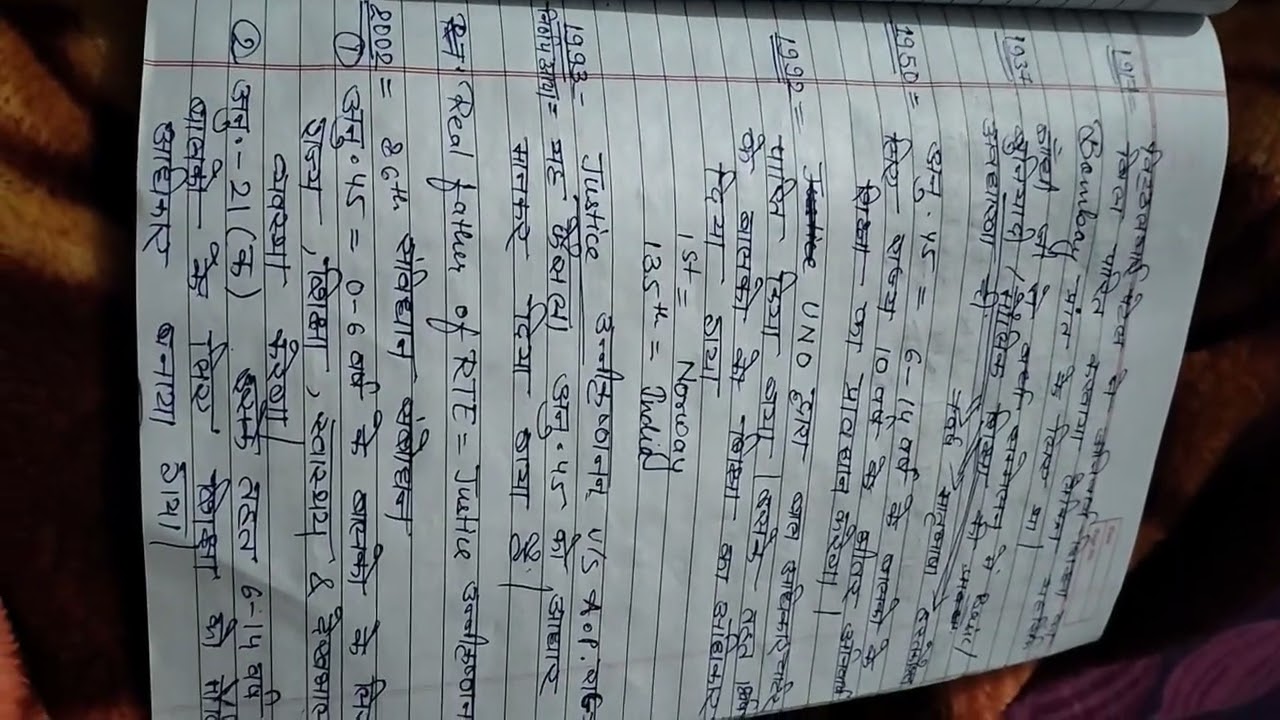 विट्ठलभाई पटेल ने अनिवार्य शिक्षा का
1917= विधेयक पारित करवाया लेकिन
(Bombay) प्रांत के लिए था।
1937 गाँधी जी ने वर्धा सम्मेलन में
बुनियादी / बेसिक शिक्षा की
अवधारणा दी
अनु. 45 = 6-14 वर्ष के बालकों के
1950= लिए राज्य 10 वर्ष के भीतर अनिवार्य
शिक्षा का प्रावधान करेगा।
1992= UNO द्वारा बाल अधिकार चार्टर
पारित किया गया। इसके तहत
के बालकों को शिक्षा का अधिकार
दिया गया
1st = Norway
135th = India
1993- Justice उन्नीकृष्णन V/S A.P. राज्य
निर्णय आया= यह फैसला अनु. 45 को आधार
मानकर दिया गया है।
Real father of RTE = Justice उन्नीकृष्णन
2002= 86th संविधान संशोधन
① अनु. 45 = 0-6 वर्ष के बालकों के लिए
राज्य, शिक्षा, स्वास्थ्य & देखभाल
व्यवस्था करेगा।
② अनु.-21(क) इसके तहत 6-14 वर्ष
बालकों के लिए शिक्षा को मौ
अधिकार बनाया गया।